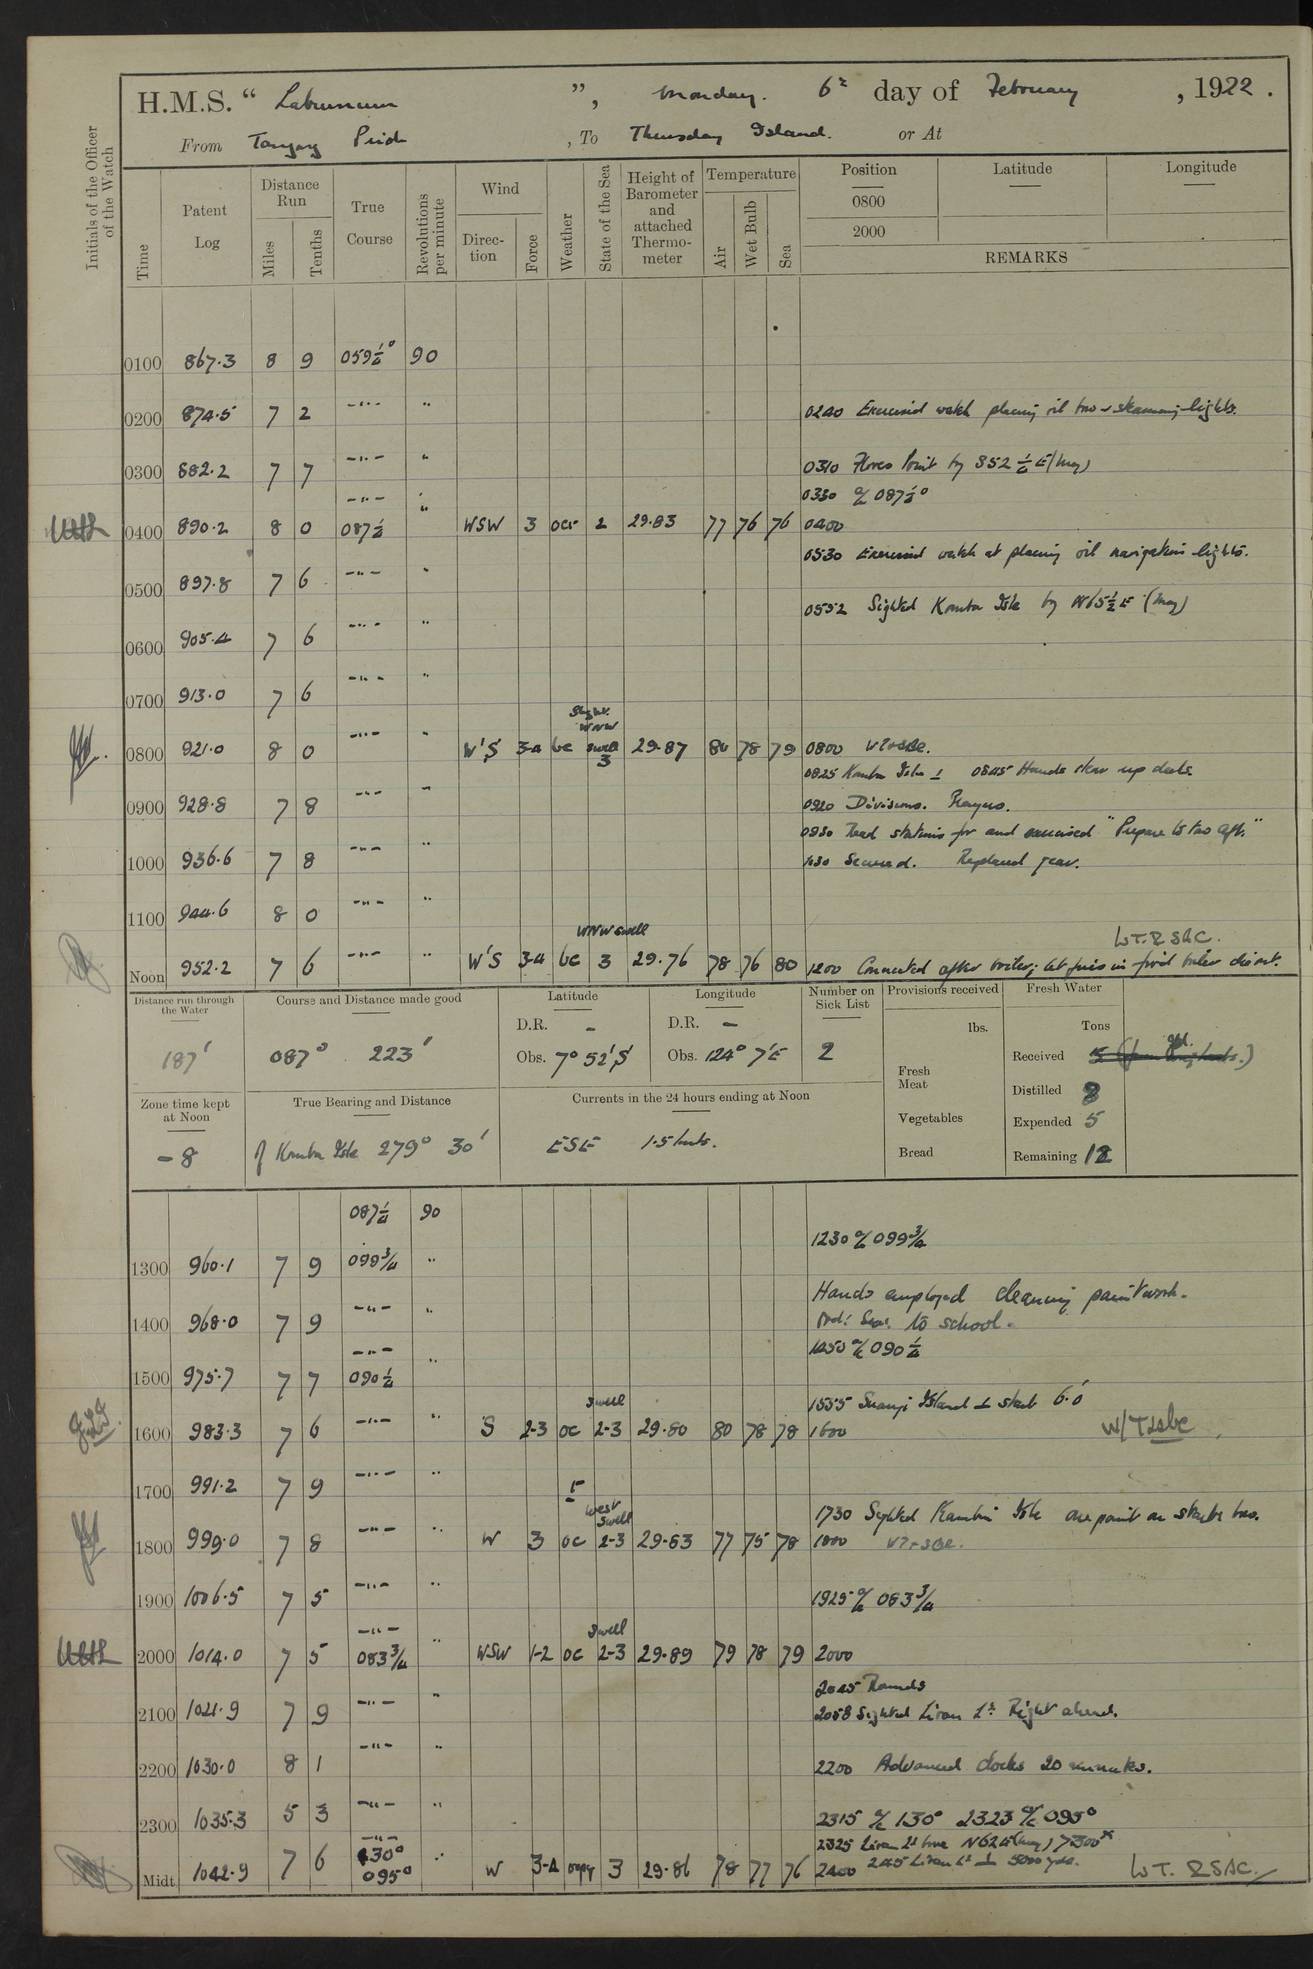 H.M.S. “ Laburnum ”, Monday. 6th day of February, 1922.
From Tanjong Priok, To Thursday Island. or At
Initials of the Officer of the Watch
Time Patent Log Distance Run Miles Tenths True Course Revolutions per minute Wind Direc-tion Force Weather State of the Sea Height of Barometer and attached Thermo-meter Temperature Air Wet Bulb Sea Position Latitude Longitude
0800
2000
REMARKS
0100 867.3 8 9 059½° 90
0200 874.5 7 2 -"- " 0240 Exercised watch placing oil bow & steaming lights.
0300 882.2 7 7 -"- " 0310 Flores Point by S52½E (mag)
-"- " 0330 a/c 087½°
0400 890.2 8 0 087½ " WSW 3 ocr 2 29.83 77 76 76 0400
0530 Exercised watch at placing oil navigation lights.
0500 897.8 7 6 -"- "
0552 Sighted Komba Isle by N65½E (mag)
0600 905.4 7 6 -"- "
0700 913.0 7 6 -"- "
Slight WNW
0800 921.0 8 0 -"- " W'S 3-4 bc swell 3 29.87 80 78 79 0800
0825 Komba Isle ⊥ 0845 Hands clear up decks.
0900 928.8 7 8 -"- " 0920 Divisions. Prayers.
0930 Read stations for and exercised "Prepare to tow aft."
1000 936.6 7 8 -"- " 1030 Secured. Replaced gear.
1100 944.6 8 0 -"- "
WNW swell W.T. RSAC.
Noon 952.2 7 6 -"- " W'S 3-4 bc 3 29.76 78 76 80 1200 Connected after boiler; let fires in fwd boiler die out.
Distance run through the Water Course and Distance made good Latitude Longitude Number on Sick List Provisions received Fresh Water
D.R. - D.R. - lbs. Tons
187' 087° 223' Obs. 7° 52'S Obs. 124° 7'E 2 Received 5
Fresh Meat Distilled 8
Zone time kept at Noon True Bearing and Distance Currents in the 24 hours ending at Noon Vegetables Expended 5
-8 of Komba Isle 279° 30' ESE 1.5 knts. Bread Remaining 12
087½ 90
1230 a/c 099¾
1300 960.1 7 9 099¾ "
Hands employed cleaning paintwork.
1400 968.0 7 9 -"- " Ord: Sea: to school.
-"- 1450 a/c 090½
1500 975.7 7 7 090½ "
swell 1535 Island ⊥ stbd 6.0'
1600 983.3 7 6 -"- " S 2-3 oc 2-3 29.80 80 78 78 1600 W/T
1700 991.2 7 9 -"- "
West swell 1730 Sighted Kambin Isle one point on starbd bow.
1800 999.0 7 8 -"- " W 3 oc 2-3 29.83 77 75 78 1800
1900 1006.5 7 5 -"- " 1925 a/c 083¾
-"- swell
2000 1014.0 7 5 083¾ " WSW 1-2 oc 2-3 29.89 79 78 79 2000
2045 Rounds
2100 1021.9 7 9 -"- " 2058 Sighted Liran Lt Right ahead.
2200 1030.0 8 1 -"- " 2200 Advanced clocks 20 minutes.
2300 1035.3 5 3 -"- " 2315 a/c 130° 2323 a/c 095°
-"- 2325 Liran Lt bore N62E (mag)
130° 2345 Liran Lt ⊥ 5000 yds.
Midt 1042.9 7 6 095° " W 3-4 29.86 78 77 76 2400 W.T. RSAC.